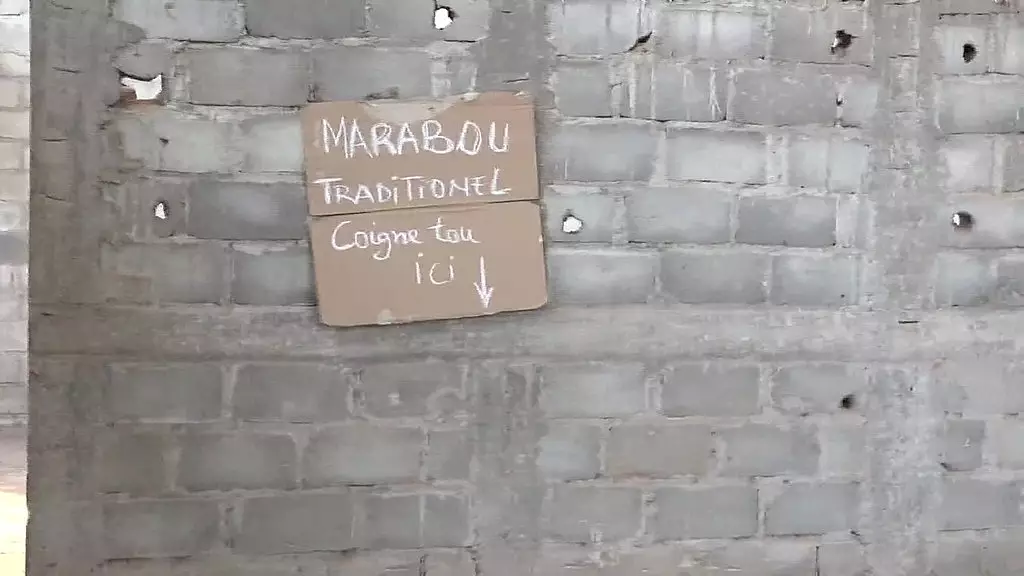 MARABOU
TRADITIONEL
Coigne tou
ici